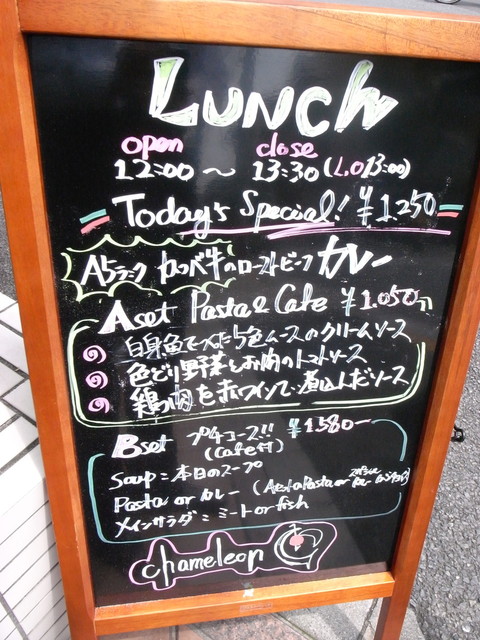 LUNCH
open close
12:00 〜 13:30 (L.O 13:00)
Today's Special! ¥1.250
A5ランク 牛のローストビーフ カレー
A set Pasta & Cafe ¥1.050
白身魚 5色ムースのクリームソース
色どり野菜とお肉のトマトソース
鶏肉を赤ワインで煮込んだソース
B set プチコース!! ¥1580-
(Cafe付)
Soup: 本日のスープ
Pasta or カレー (A set Pasta or
メインサラダ: ミート or fish
chameleon